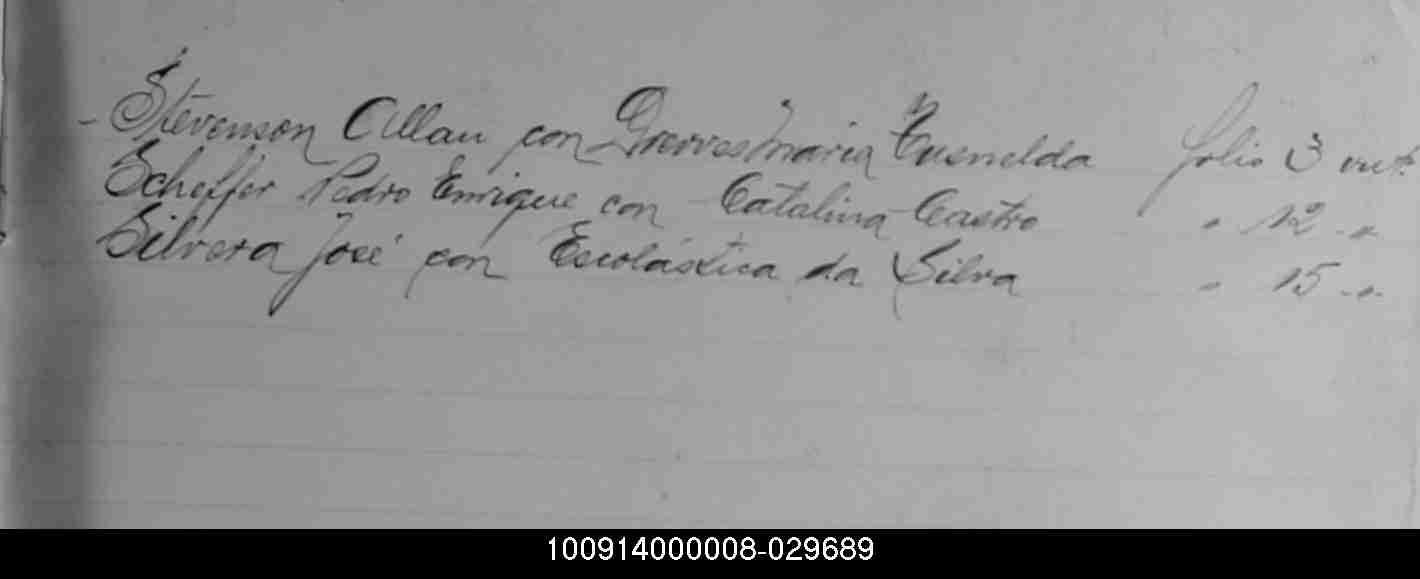 - Stevenson Allan con Drewes Maria Tusnelda folio 3 vut.
Scheffer Pedro Enrique con Catalina Castro " 12 - "
Silvera José con Escolástica da Silva " 15 - "
100914000008-029689